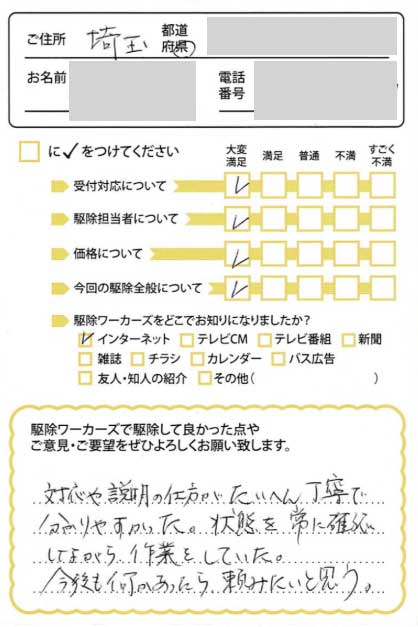 ご住所 埼玉 都道
府県
お名前 電話
番号
□に✓をつけてください
大変
満足 満足 普通 不満 すごく
不満
受付対応について
駆除担当者について
価格について
今回の駆除全般について
駆除ワーカーズをどこでお知りになりましたか？
インターネット テレビCM テレビ番組 新聞
雑誌 チラシ カレンダー バス広告
友人・知人の紹介 その他( )
駆除ワーカーズで駆除して良かった点や
ご意見・ご要望をぜひよろしくお願い致します。
対応や説明の仕方がたいへん丁寧で
分かりやすかった。状態を常に確認
しながら作業をしていた。
今後も何かあったら頼みたいと思う。